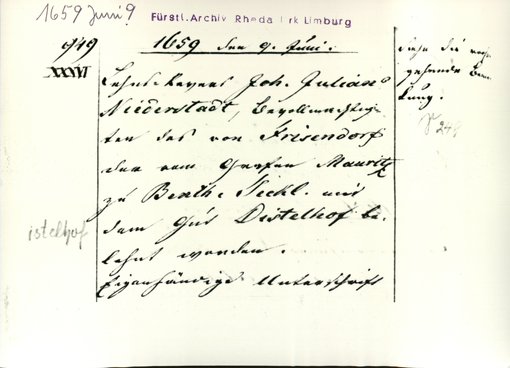 1659 Juni 9
Fürstl. Archiv Rheda Urk Limburg
949
XXXVI
1659 den 9. Juni.
Lehns Revers Joh. Julian
Niederstadt, Bevollmächtig-
ten des von Frisendorf
der vom Grafen Mauritz
zu Benth. Teckl. mit
dem Gut Distelhof be-
lehnt worden.
Eigenhändige Unterschrift
siehe die vorher
gehende Bemer
kung.
istelhof